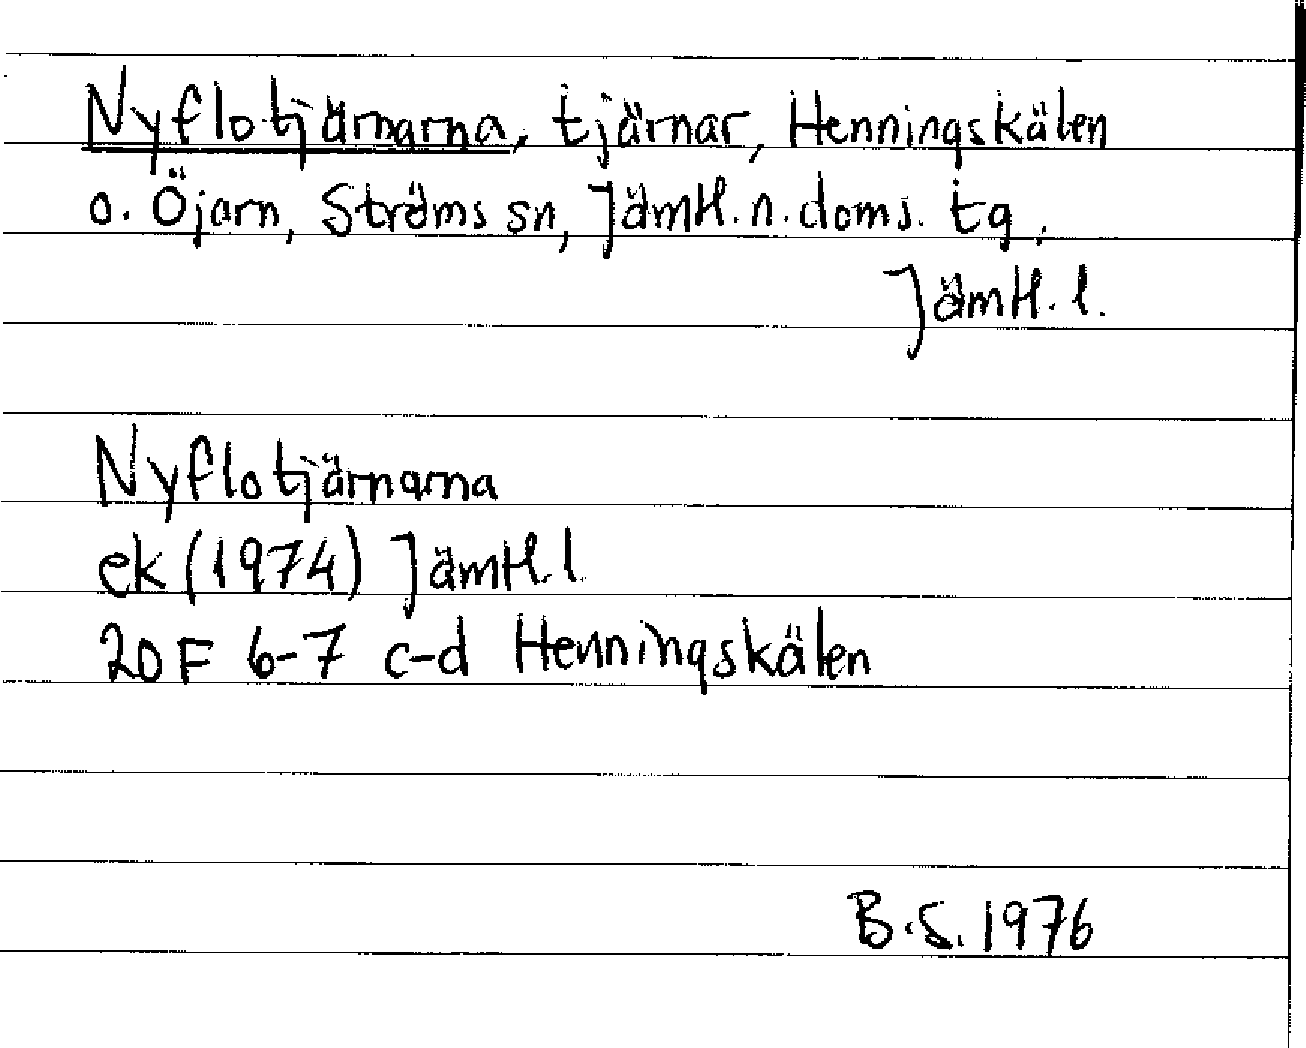 Nyflotjärnarna, tjärnar, Henningskälen
o. Öjarn, Ströms sn, Jämtl. n. doms. tg,
Jämtl. l.
Nyflotjärnarna
ek (1974) Jämtl. l.
20 F 6-7 c-d Henningskälen
B.S. 1976